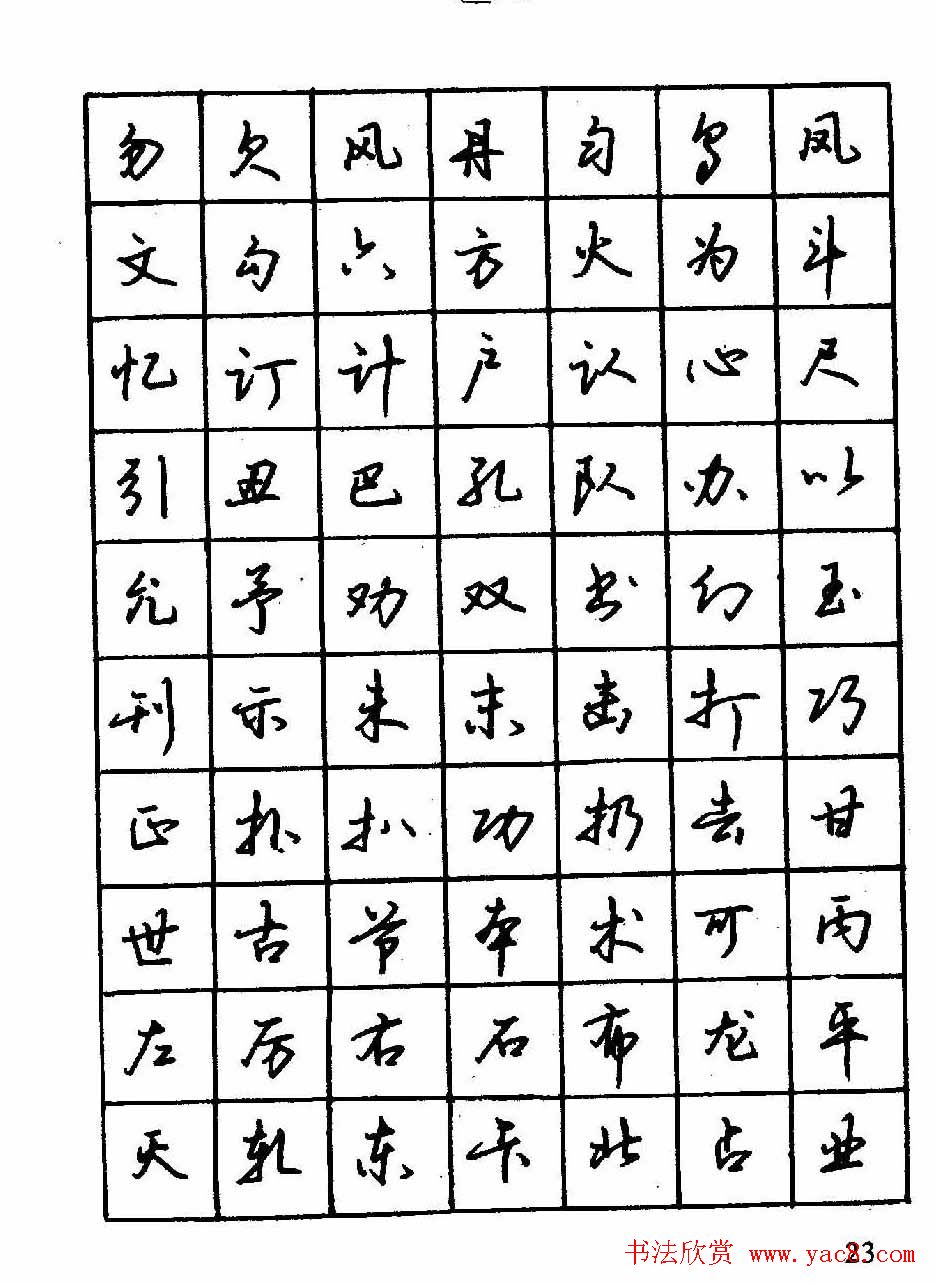 勿欠风丹匀乌凤
文勾六方火为斗
忆订计户认心尺
引丑巴孔队办以
允予劝双书幻玉
刊示未末击打巧
正扑扒功扔去甘
世古节本术可丙
左厉右石布龙平
灭轧东卡北占业
23
书法欣赏 www.yac8.com